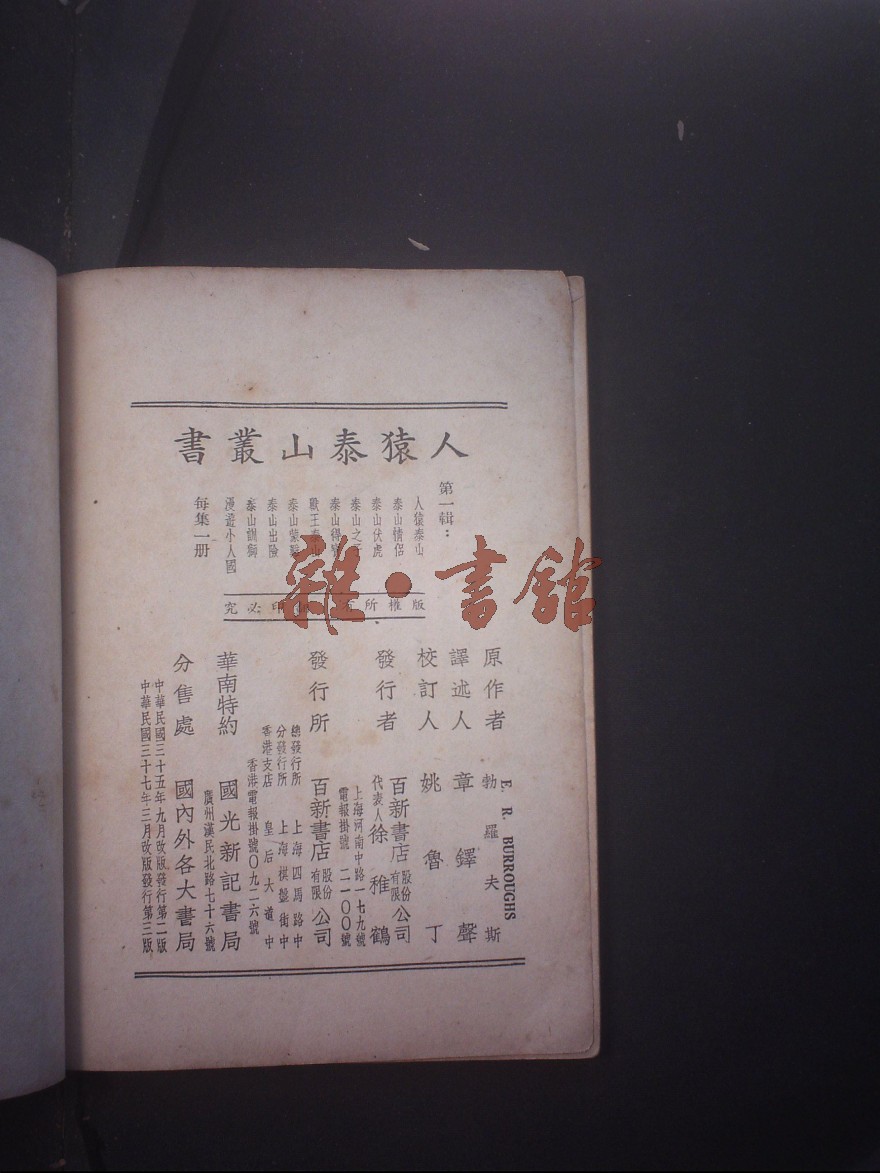 人猿泰山叢書
第一輯：
人猿泰山
泰山情侶
泰山伏虎
泰山之子
泰山得寶
獸王泰山
泰山蒙難
泰山出險
泰山訓獅
漫遊小人國
每集一册
版權所有 翻印必究
雜·書館
原作者 勃羅夫斯
E. R. BURROUGHS
譯述人 章鐸聲
校訂人 姚魯丁
發行者 百新書店股份有限公司
代表人徐稚鶴
上海河南中路一七九號
電報掛號 二一〇〇號
發行所 百新書店股份有限公司
總發行所 上海四馬路中
分發行所 上海棋盤街中
香港支店 皇后大道中
香港電報掛號〇九二六號
華南特約 國光新記書局
廣州漢民北路七十六號
分售處 國內外各大書局
中華民國三十五年九月改版發行第二版
中華民國三十七年三月改版發行第三版